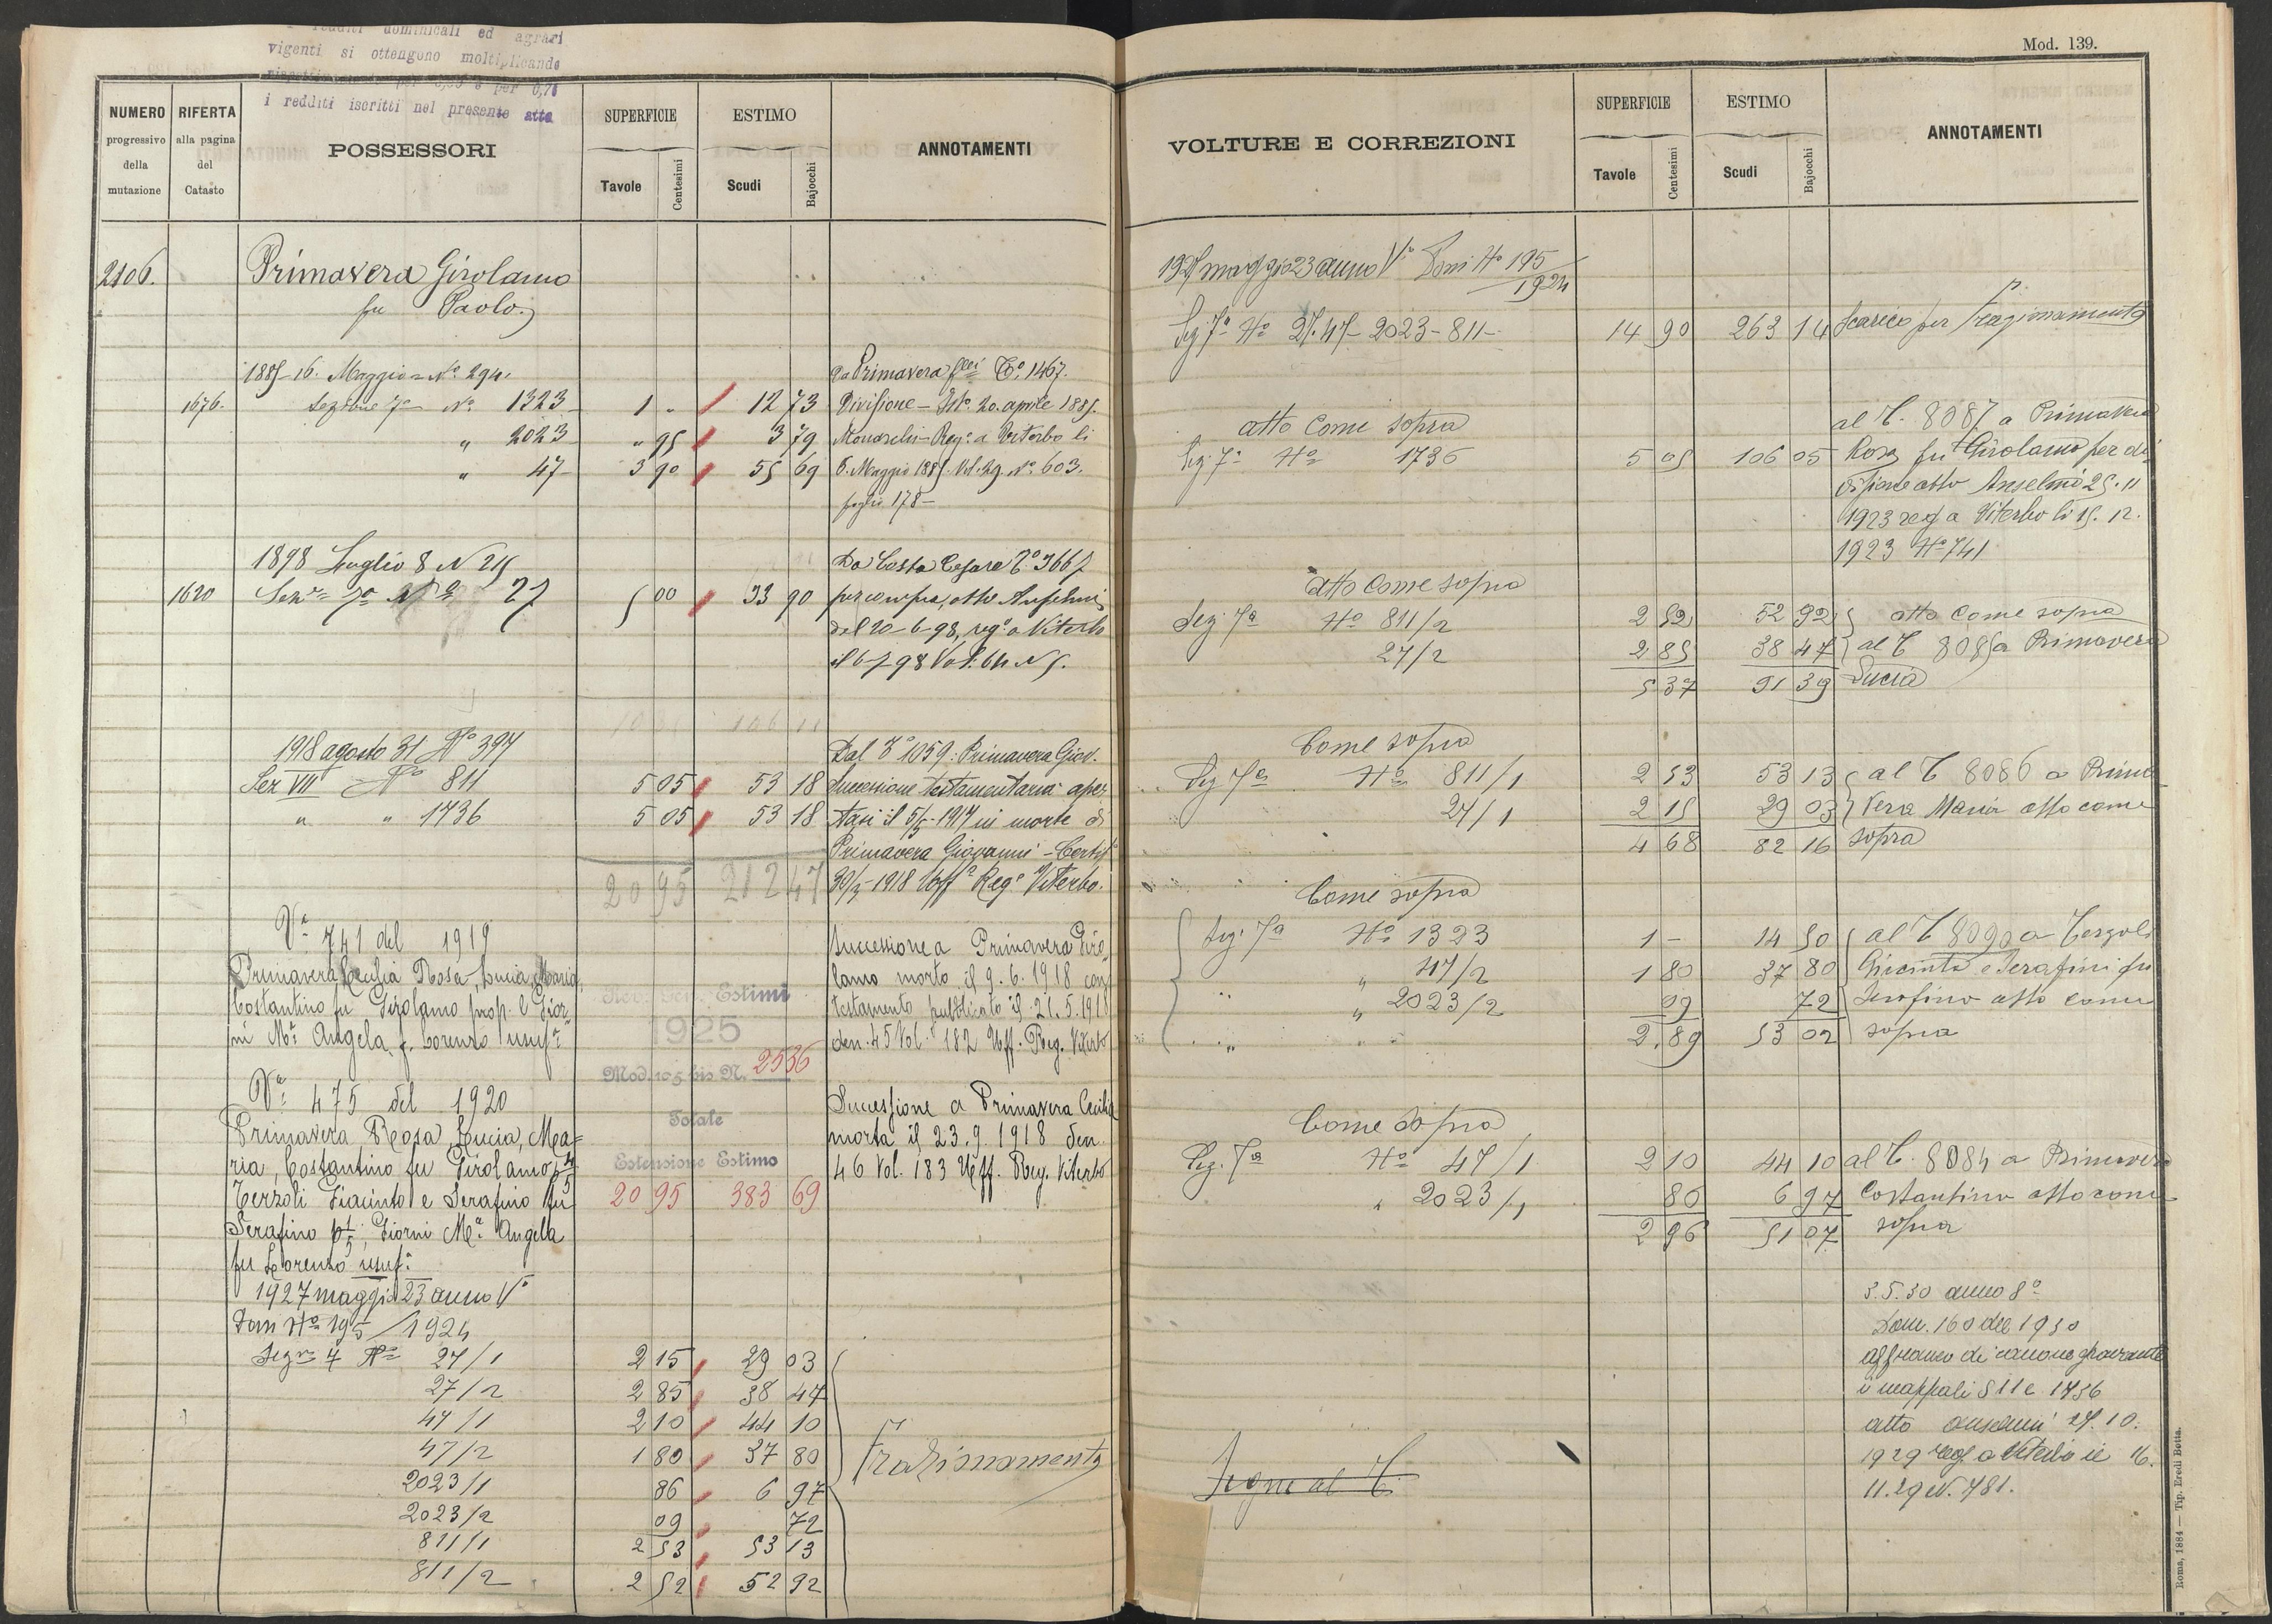 redditi dominicali ed agrari
vigenti si ottengono moltiplicando
per 0,7
i redditi iscritti nel presente atto
NUMERO progressivo della mutazione
RIFERTA alla pagina del Catasto
POSSESSORI
SUPERFICIE Tavole Centesimi
ESTIMO Scudi Bajocchi
ANNOTAMENTI
2106. Primavera Girolamo
fu Paolo
1885-16. Maggio = Nº 294. Da Primavera flli Tº. 1467.
1676. Sezione 7ª Nº 1323 1 " 12 73 Divisione - Istº. 20. aprile 1885.
" 2023 " 95 3 79 Regº. a Viterbo li
" 47 3 90 55 69 6. Maggio 1885. Vol. 29. Nº 603.
foglio 178 -
1898 Luglio 8 N 215 Da Costa Cesare Tº 3667
1620 Sezne 7ª Nº 27 5 00 33 90 per compra, atto Anselmi
del 20-6-98, regº a Viterbo
il 6-7 98 Vol. 64 N 5.
10 106 11
1918 agosto 31 Nº 394 Dal Tº 1059: Primavera Giov.
Sez VII Nº 811 5 05 53 18 Successione testamentaria aper
" " 1736 5 05 53 18 tasi il 5/5-1917 in morte di
Primavera Giovanni - Certif
20 95 212 47 30/3-1918 Uffº Regº Viterbo.
Vª 741 del 1919 Successione a Primavera Giro
Primavera Cecilia Rosa, Lucia, Maria lamo morto il 9.6.1918 con
Costantino fu Girolamo prop. e Gior testamento pubblicato il 21.5.1918
ni Mª Angela f. Lorenzo usufª den. 45 Vol. 182 Uff. Reg. Viterbo
Rev. Gen. Estimi
1925
Mod. 105 bis N. 2536
Vª 475 del 1920 Successione a Primavera Cecilia
Totale
Primavera Rosa, Lucia, Ma= morta il 23.9.1918 den.
ria, Costantino fu Girolamo p 4/5 Estensione Estimo 46 Vol. 183 Uff. Reg. Viterbo
Terzoli Giacinto e Serafino fu 20 95 383 69
Serafino p 1/5; Giorni Mª Angela
fu Lorenzo usufª
1927 maggio 23 anno Vº
Dom Nº 195/1924
Segue 7 Nº 27/1 2 15 29 03
27/2 2 85 38 47
47/1 2 10 44 10
47/2 1 80 37 80 Frazionamento
2023/1 86 6 97
2023/2 09 72
811/1 2 53 53 13
811/2 2 52 52 92
Mod. 139.
VOLTURE E CORREZIONI
SUPERFICIE Tavole Centesimi
ESTIMO Scudi Bajocchi
ANNOTAMENTI
1927 maggio 23 anno Vº Dom Nº 195/1924
Sez 7ª Nº 27.47-2023-811- 14 90 263 14 Scarico per frazionamento
atto come sopra al T. 8087 a Primavera
Sez. 7ª Nº 1736 5 05 106 05 Rosa fu Girolamo per di
visione atto Anselmi 25.11
1923 reg a Viterbo li 15.12.
1923 Nº 741
atto come sopra
Sez 7ª Nº 811/2 2 52 52 92 atto come sopra
27/2 2 85 38 47 al T 8085 a Primavera
5 37 91 39 Lucia
Come sopra
Sez 7ª Nº 811/1 2 53 53 13 al T 8086 a Prima
27/1 2 15 29 03 vera Maria atto come
4 68 82 16 sopra
Come sopra
Sez. 7ª Nº 1323 1 - 14 50 al T 8090 a Terzoli
" 47/2 1 80 37 80 Giacinto e Serafini fu
" 2023/2 09 72 Serafino atto come
" 2,89 53 02 sopra
Come sopra
Sez. 7ª Nº 47/1 2 10 44 10 al T. 8084 a Primavera
" 2023/1 86 6 97 Costantino atto come
2 96 51 07 sopra
3.5.30 anno 8º
Dom. 160 del 1930
affranco di canone gravante
i mappali 811 e 1736
atto Anselmi 27.10.
1929 reg. a Viterbo il 16.
Segue al T. 11.29 N. 781.
Roma, 1884 — Tip. Eredi Botta.